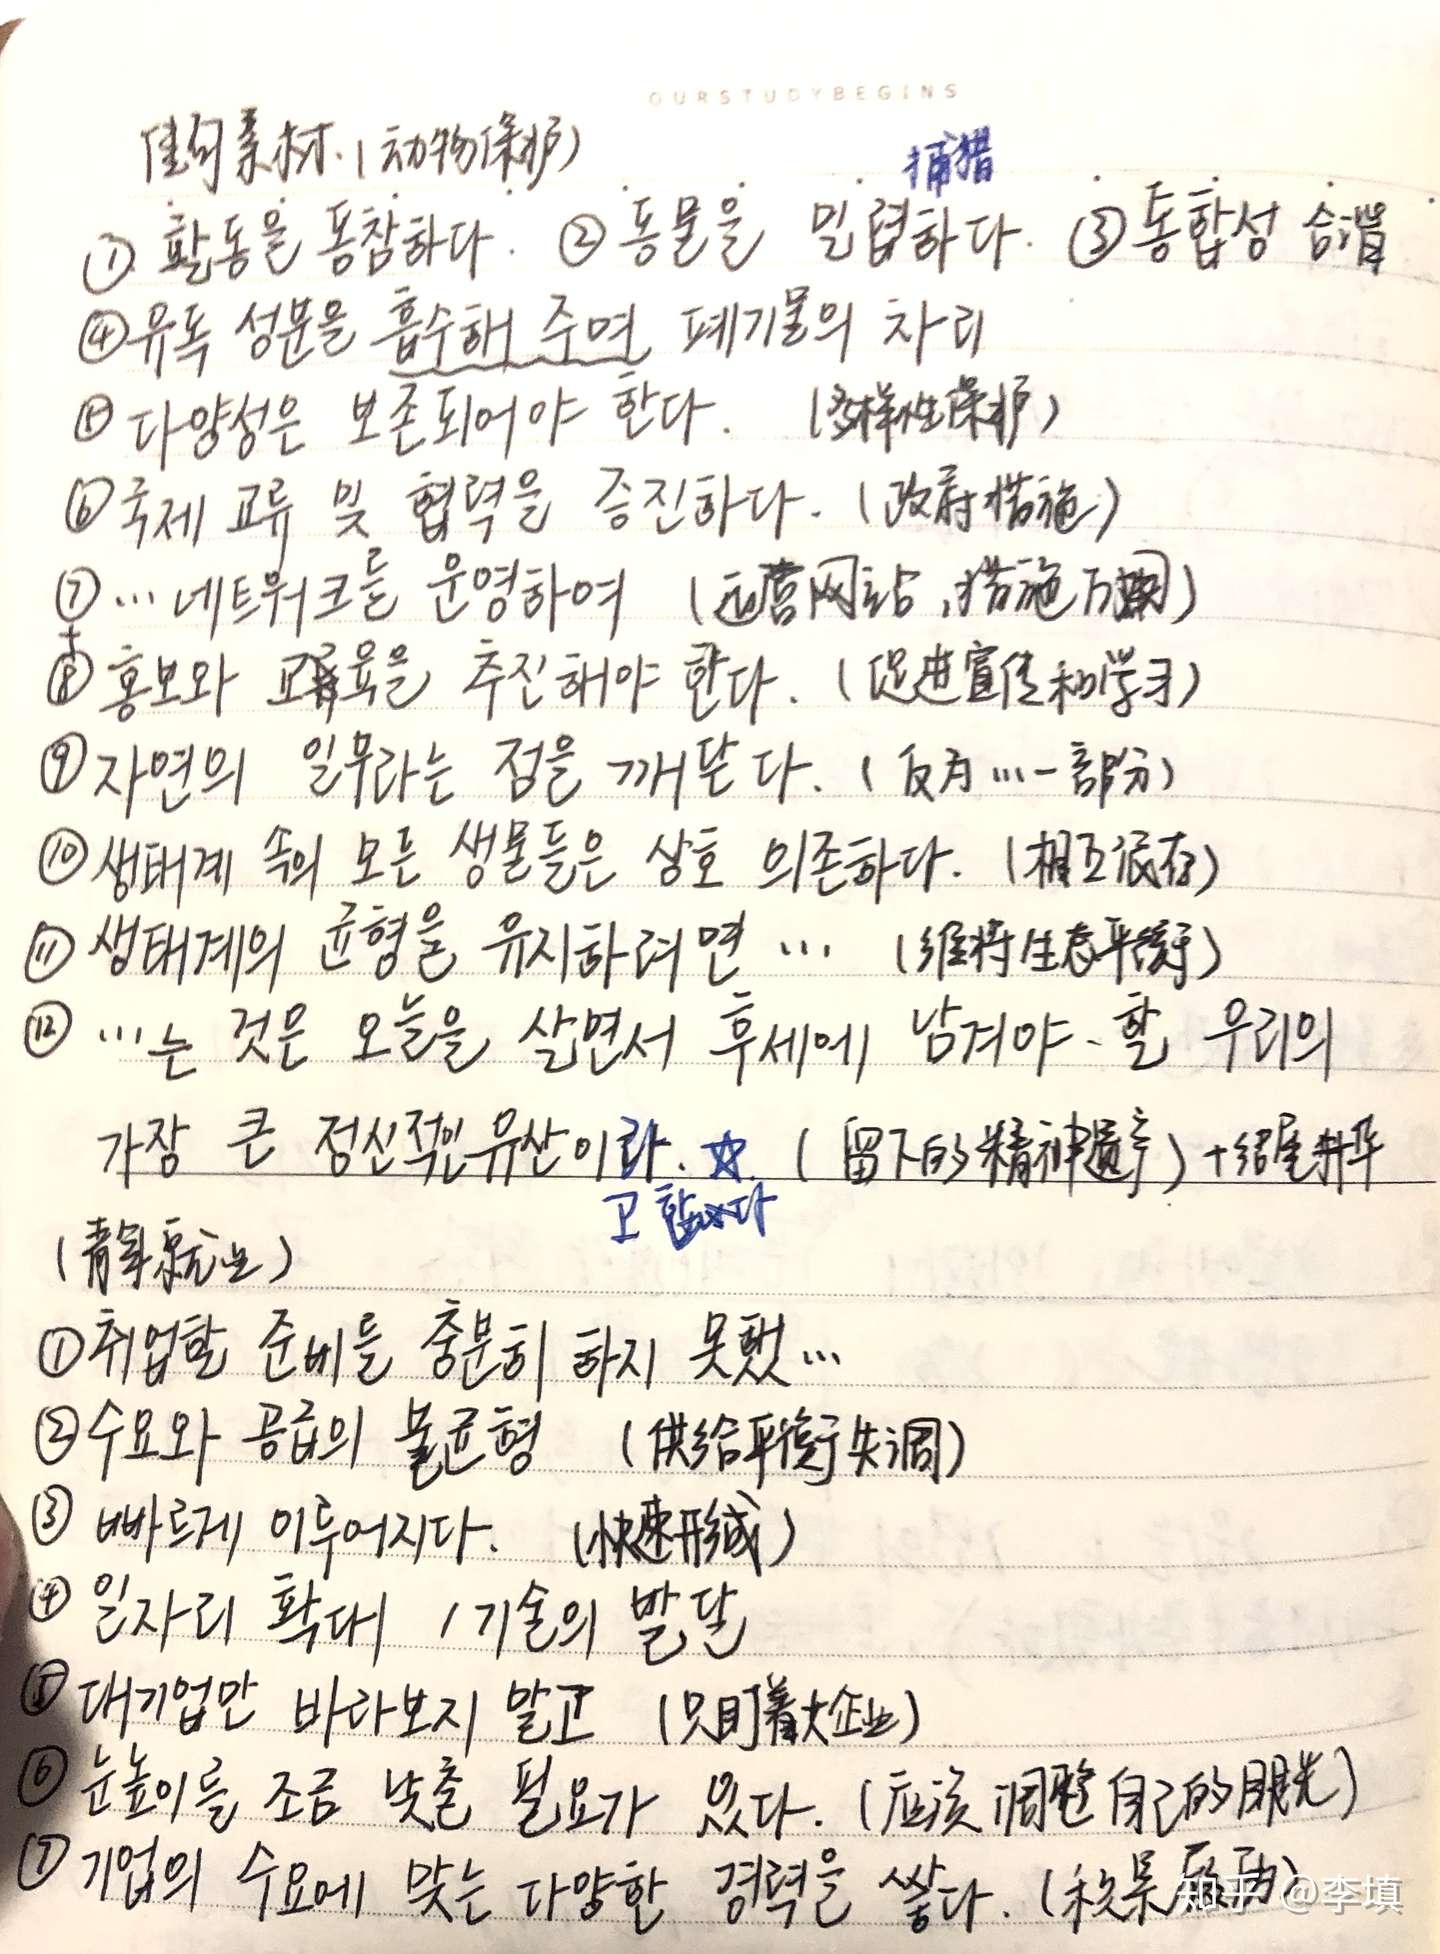 OURSTUDYBEGINS
佳句素材.(动物保护)
捕猎
① 활동을 동참하다. ② 동물을 밀렵하다. ③ 통합성 合谐
④ 유독 성분을 흡수해 주며 폐기물의 차리
⑤ 다양성은 보존되어야 한다. (多样性保护)
⑥ 국제 교류 및 협력을 증진하다. (政府措施)
⑦ …네트워크를 운영하여 (运营网站,措施方面)
⑧ 홍보와 교육을 추진해야 한다. (促进宣传和学习)
⑨ 자연의 일부라는 점을 깨닫다. (反方…一部分)
⑩ 생태계 속의 모든 생물들은 상호 의존하다. (相互依存)
⑪ 생태계의 균형을 유지하려면 … (维持生态平衡)
⑫ …는 것은 오늘을 살면서 후세에 남겨야 할 우리의
가장 큰 정신적인 유산이라. ☆. (留下的精神遗产)+结尾升华
고 합니다
(青年就业)
① 취업할 준비를 충분히 하지 못했…
② 수요와 공급의 불균형 (供给平衡失调)
③ 빠르게 이루어지다. (快速形成)
④ 일자리 확대 / 기술의 발달
⑤ 대기업만 바라보지 말고 (只盯着大企业)
⑥ 눈높이를 조금 낮출 필요가 있다. (应该调整自己的眼光)
⑦ 기업의 수요에 맞는 다양한 경력을 쌓다. (积
知乎 @李填